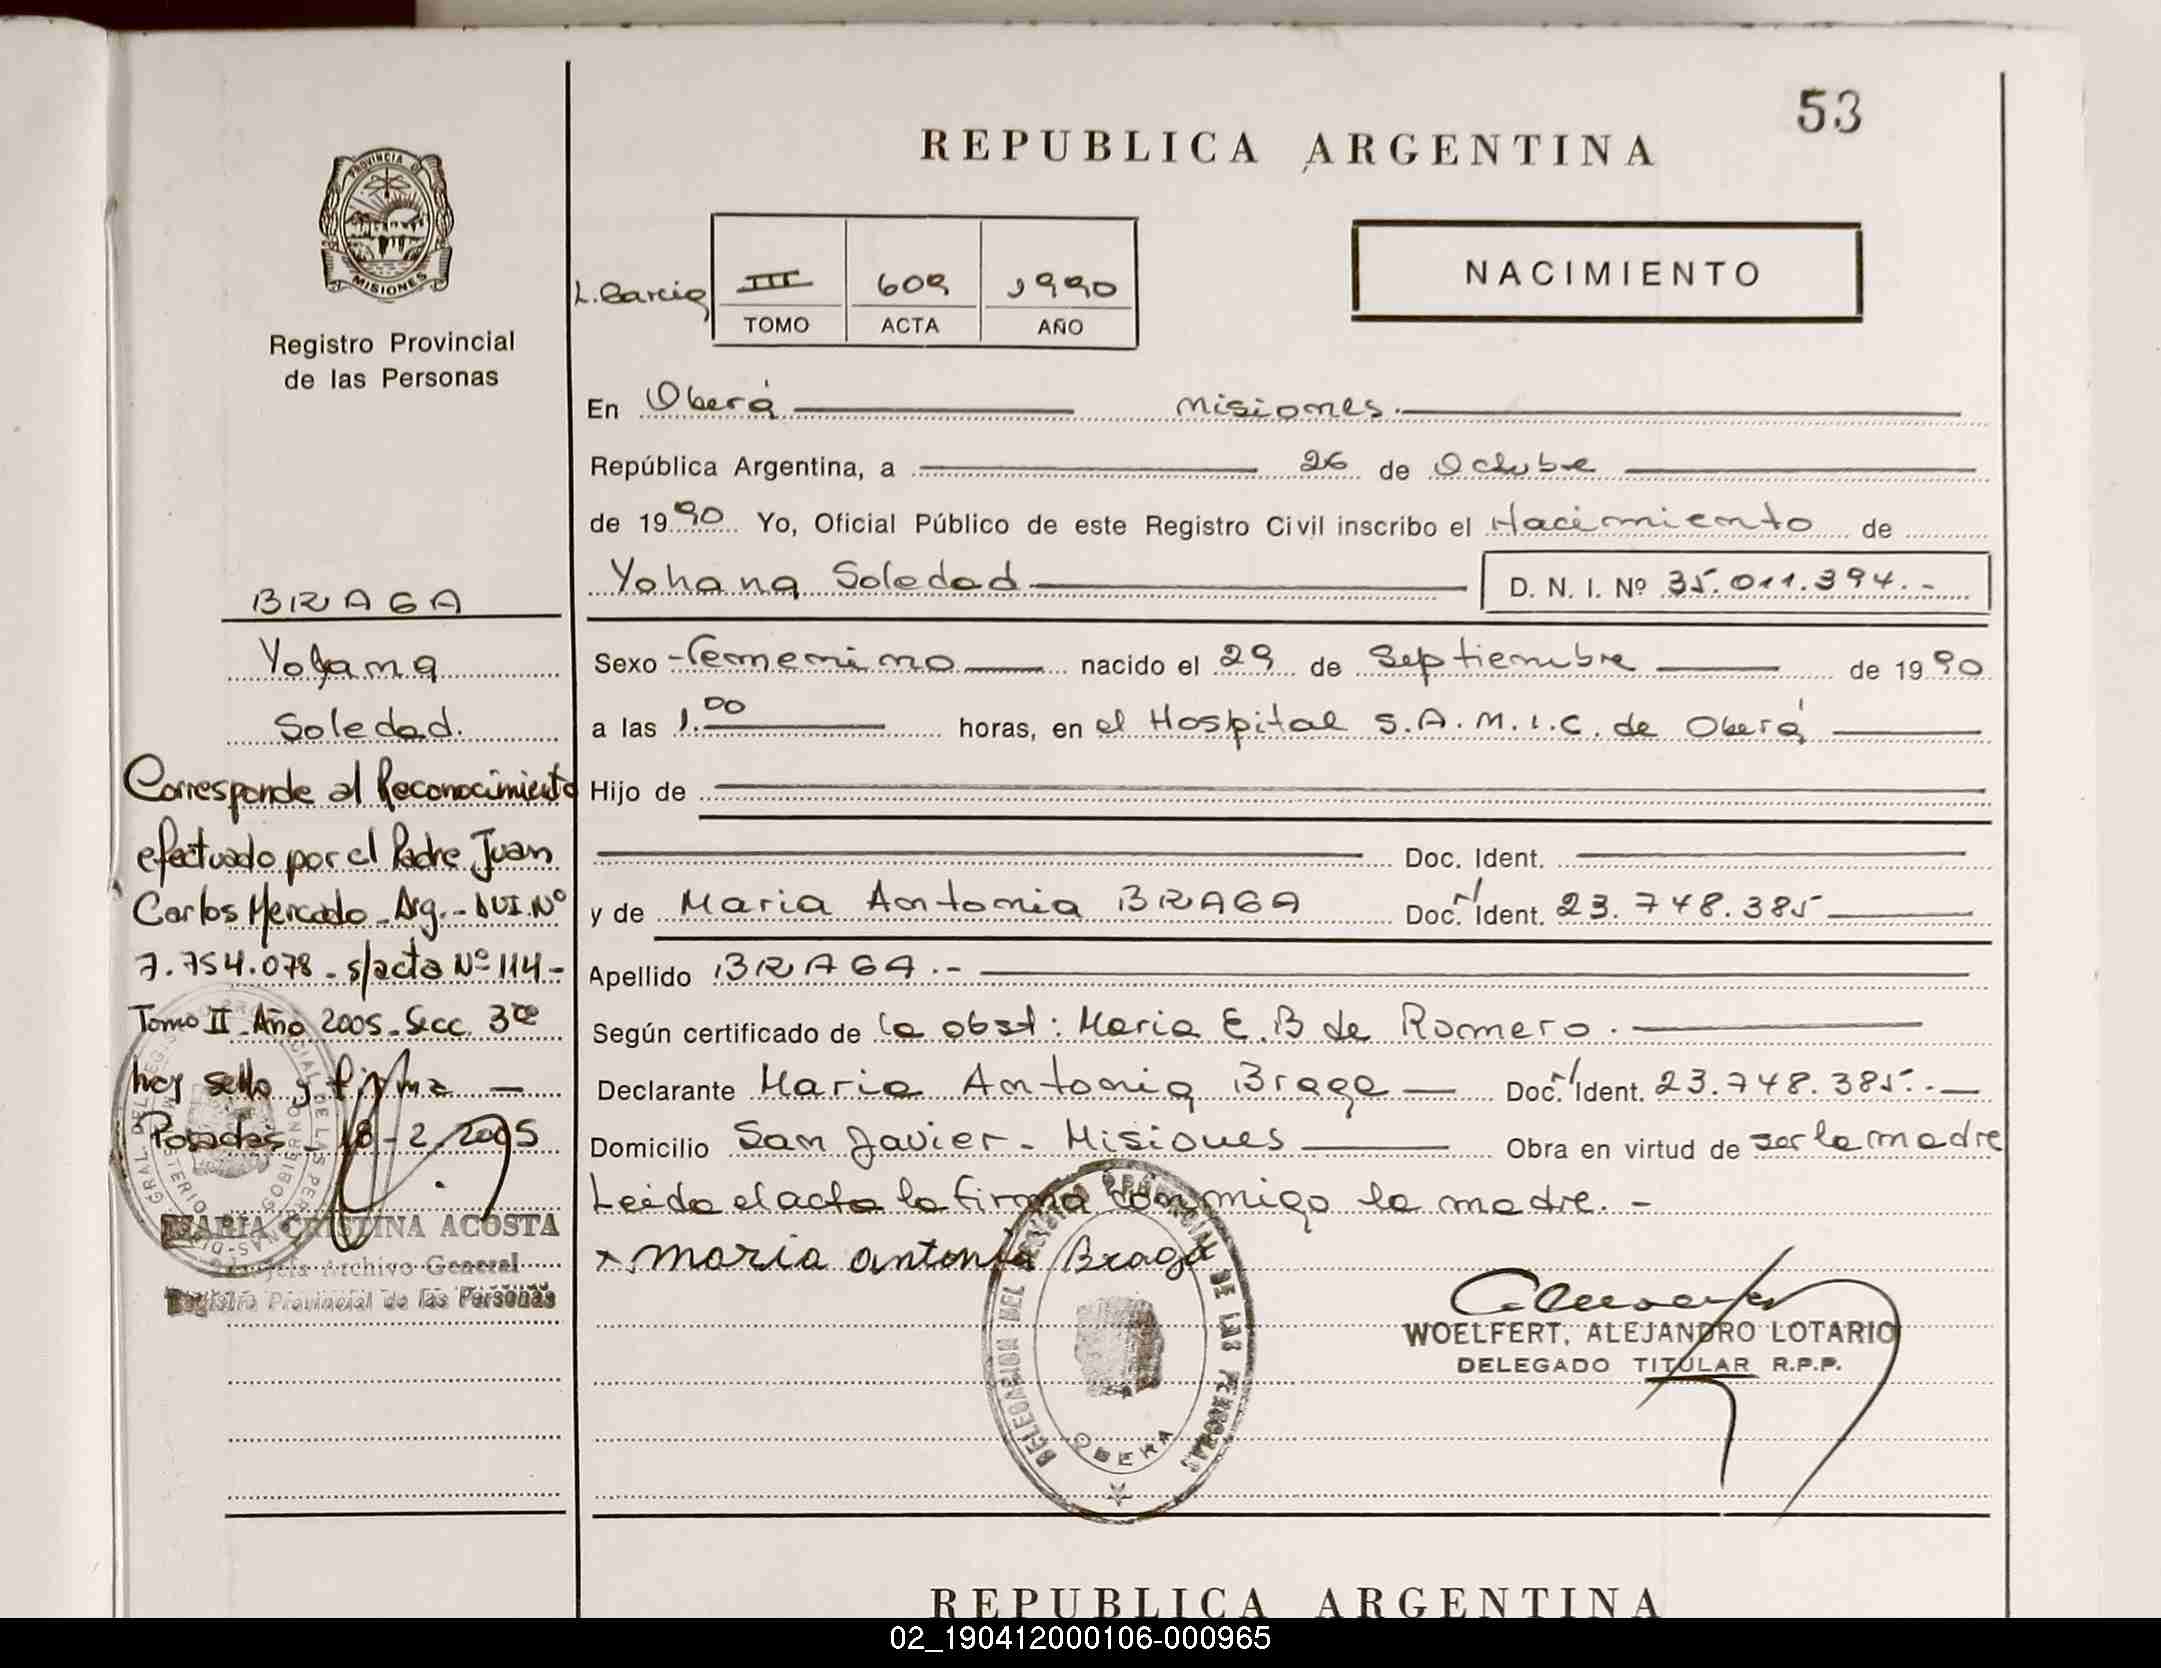 53
REPUBLICA ARGENTINA
PROVINCIA DE
MISIONES
Registro Provincial
de las Personas
L. Garcia
III 609 1990
TOMO ACTA AÑO
NACIMIENTO
En Oberá Misiones.
República Argentina, a 26 de Octubre
de 1990 Yo, Oficial Público de este Registro Civil inscribo el Nacimiento de
Yohana Soledad D. N. I. Nº 35.011.394.-
Sexo Femenino nacido el 29 de Septiembre de 1990
a las 1.00 horas, en el Hospital S.A.M.I.C. de Oberá
Hijo de
Doc. Ident.
y de Maria Antonia BRAGA Doc. Ident. 23.748.385
Apellido BRAGA.-
Según certificado de la obst: Maria E.B de Romero.
Declarante Maria Antonia Braga Doc. Ident. 23.748.385.-
Domicilio San Javier - Misiones Obra en virtud de ser la madre
Leida el acta la firma conmigo la madre.-
x maria antonia Braga
WOELFERT, ALEJANDRO LOTARIO
DELEGADO TITULAR R.P.P.
DELEGACION DEL REGISTRO PROVINCIAL DE LAS PERSONAS
OBERA
BRAGA
Yohana
Soledad.
Corresponde al Reconocimiento
efectuado por el Padre Juan
Carlos Mercado - Arg. - DNI. Nº
7.754.078 - s/acta Nº 114.-
Tomo II - Año 2005 - Secc. 3ra
hay sello y firma
Posadas - 18-2-2005
MARIA CRISTINA ACOSTA
Archivo General
Registro Provincial de las Personas
REPUBLICA ARGENTINA
02_190412000106-000965